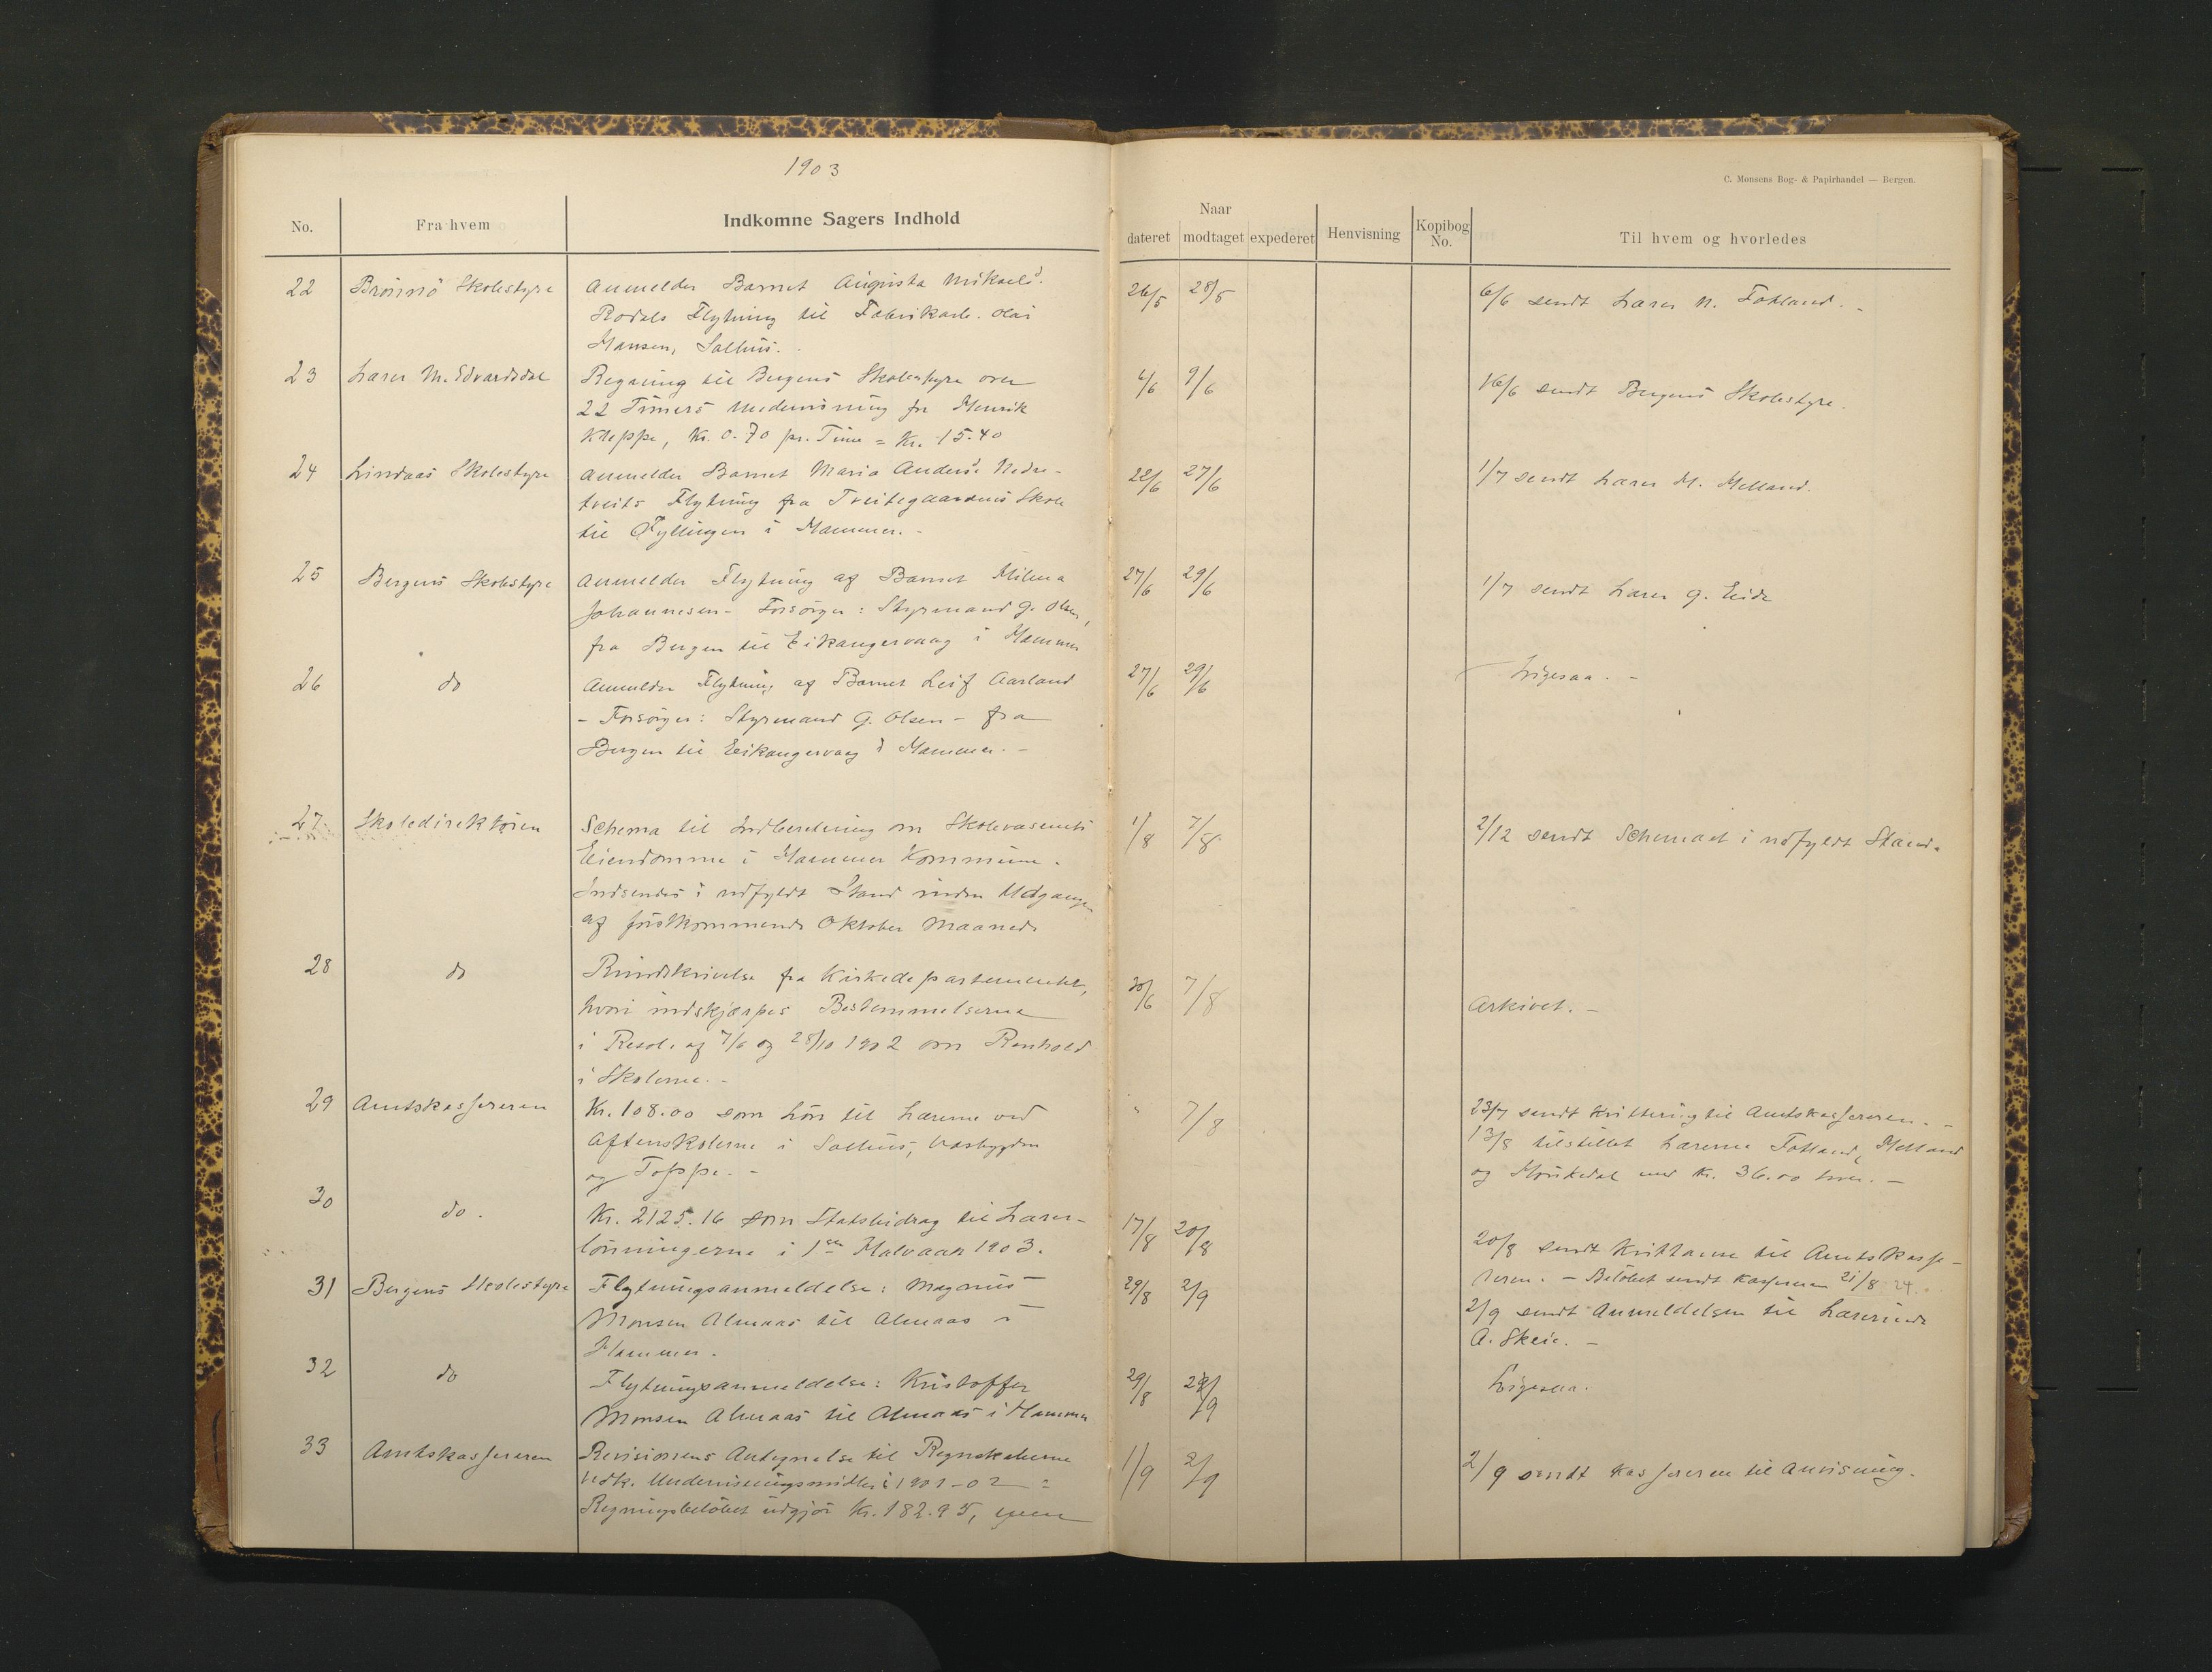 1903
C. Monsens Bog- & Papirhandel — Bergen.
No. Fra hvem Indkomne Sagers Indhold Naar dateret modtaget expederet Henvisning Kopibog No. Til hvem og hvorledes
22 Brönnö Skolestyre Anmelder Barnet Augusta Mikaelsd. 26/5 28/5 6/6 sendt Lærer N. Fotland. -
Rodals Flytning til Fabrikarb. Olai
Hansen, Salhus.
23 Lærer M. Edvardsdal Regning til Bergens Skolestyre over 6/6 9/6 16/6 sendt Bergens Skolestyre.
22 Timers Undervisning for Henrik
Kleppe, Kr. 0.70 pr. Time = Kr. 15.40
24 Lindaas Skolestyre Anmelder Barnet Maria Andersd. Nedre- 22/6 27/6 1/7 sendt Lærer M. Melland.
treits Flytning fra Tveitegaardens Skole
til Fyllingen i Hammer. -
25 Bergens Skolestyre Anmelder Flytning af Barnet Milma 27/6 29/6 1/7 sendt Lærer G. Eide
Johannesen - Forsörger: Styrmand G. Olsen,
fra Bergen til Eikangervaag i Hammer
26 do Anmelder Flytning af Barnet Leif Aarland 27/6 29/6 Ligesaa. -
- Forsörger: Styrmand G. Olsen - fra
Bergen til Eikangervaag i Hammer. -
27 Skoledirektören Schema til Indberetning om Skolevæsenets 1/8 7/8 2/12 sendt Schemaet i udfyldt Stand.
Eiendomme i Hammer Kommune.
Indsendes i udfyldt Stand inden Udgangen
af förstkommende Oktober Maaned.
28 do Rundskrivelse fra Kirkedepartementet, 30/6 7/8 Arkivet. -
hvori indskjærpes Bestemmelserne
i Resol. af 7/6 og 28/10 1902 om Renhold
i Skolerne. -
29 Amtskassereren Kr. 108.00 som Lön til Lærerne ved " 7/8 23/7 sendt Kvittering til Amtskassereren. -
Aftenskolerne i Salhus, og Toppe. - 13/8 tilstillet Lærerne Fotland, Melland
og Mörkedal med Kr. 36.00 hver. -
30 do. Kr. 2125.16 som Statsbidrag til Lærer- 17/8 20/8 20/8 sendt Kvittering til Amtskasse-
lönningerne i 1ste Halvaar 1903. reren. - Belöbet sendt Kassereren 21/8 24.
31 Bergens Skolestyre Flytningsanmeldelse: Magnus 29/8 2/9 2/9 sendt Anmeldelsen til Lærerinde
Monsen Almaas til Almaas i A. Skeie. -
Hammer.
32 do Flytningsanmeldelse: Kristoffer 29/8 2/9 Ligesaa.
Monsen Almaas til Almaas i Hammer
33 Amtskassereren Revisionens Antegnelse til Regnskaberne 1/9 2/9 2/9 sendt Kassereren til Anvisning.
vedk. Undervisningsmidler i 1901-02
Regningsbelöbet udgjör Kr. 182.95,